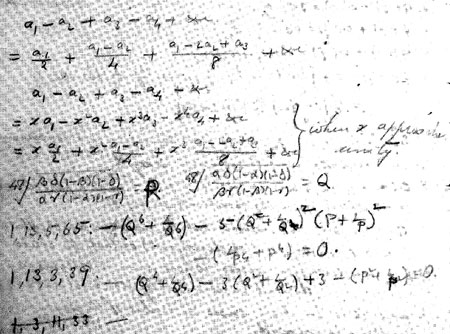 a₁ - a₂ + a₃ - a₄ + &c
= a₁/2 + (a₁ - a₂)/4 + (a₁ - 2a₂ + a₃)/8 + &c
a₁ - a₂ + a₃ - a₄ + &c
= xa₁ - x²a₂ + x³a₃ - x⁴a₄ + &c
= x a₁/2 + x² (a₁ - a₂)/4 + x³ (a₁ - 2a₂ + a₃)/8 + &c } when x approaches unity.
= P = Q
1, 13, 5, 65. — (Q⁶ + 1/Q⁶) - 5(Q² + 1/Q²)² (P + 1/P)²
- (1/P⁴ + P⁴) = 0.
1, 13, 3, 39. — (Q⁴ + 1/Q⁴) - 3(Q² + 1/Q²) + 3 - (P² + 1/P²) = 0.
1, 3, 11, 33 —